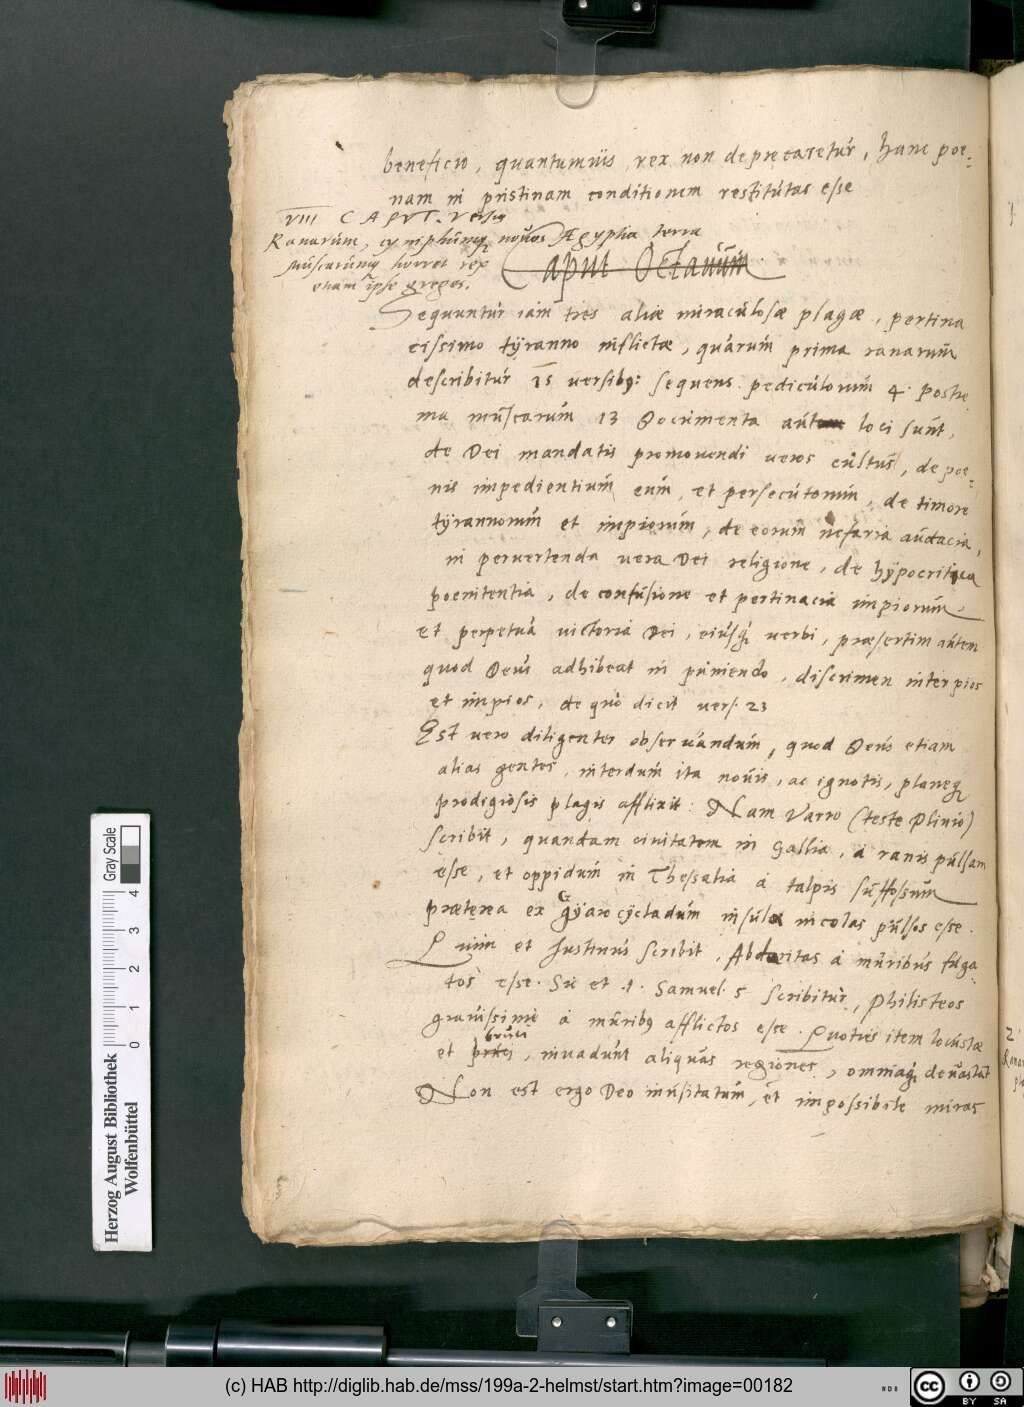 beneficio, quantumuis rex non deprecaretur, hanc poe=
nam in pristinam conditionem restitutas esse
VIII CAPVT. Versus
Ranarum, cyniphumq nouos Ægyptia terra
Muscarumq horret rex
etiam ipse greges.
Caput Octauum
Sequuntur iam tres aliæ miraculosæ plagæ, pertina
cissimo tÿranno inflictæ, quarum prima ranarum
describitur 15 versibq: sequens pediculorum 4. Postre
ma muscarum 13 Documenta autem loci sunt,
de Dei mandatis promouendi veros cultus, de poe=
nis impedientium eum, et persecutorum, de timore
tÿrannorum et impiorum, de eorum nefaria audacia,
in peruertenda vera Dei religione, de hÿpocritica
poenitentia, de confusione et pertinacia impiorum,
et perpetua victoria Dei, eiusq verbi, præsertim autem
quod Deus adhibeat in puniendo, discrimen inter pios
et impios, de quo dicit vers. 23
Est vero diligenter obseruandum, quod Deus etiam
alias gentes, interdum ita nouis, ac ignotis, planeq
prodigiosis plagis afflixit: Nam Varro (teste Plinio)
scribit, quandam ciuitatem in Gallia, à ranis pulsam
esse, et oppidum in Thessalia à talpis suffossum
præterea ex Gÿaro cÿcladum insula incolas pulsos esse.
Quin et Iustinus scribit, Abderitas à muribus fuga
tos esse. Sic et .1. Samuel. 5 scribitur, Philisteos
grauissime à muribq afflictos esse. Quoties item locustæ
et bruci bruci, inuadunt aliquas regiones, omniaq deuastant
Non est ergo Deo inusitatum, et impossibile miras
2
Gray Scale
0 1 2 3 4
Herzog August Bibliothek
Wolfenbüttel
(c) HAB http://diglib.hab.de/mss/199a-2-helmst/start.htm?image=00182
cc BY SA